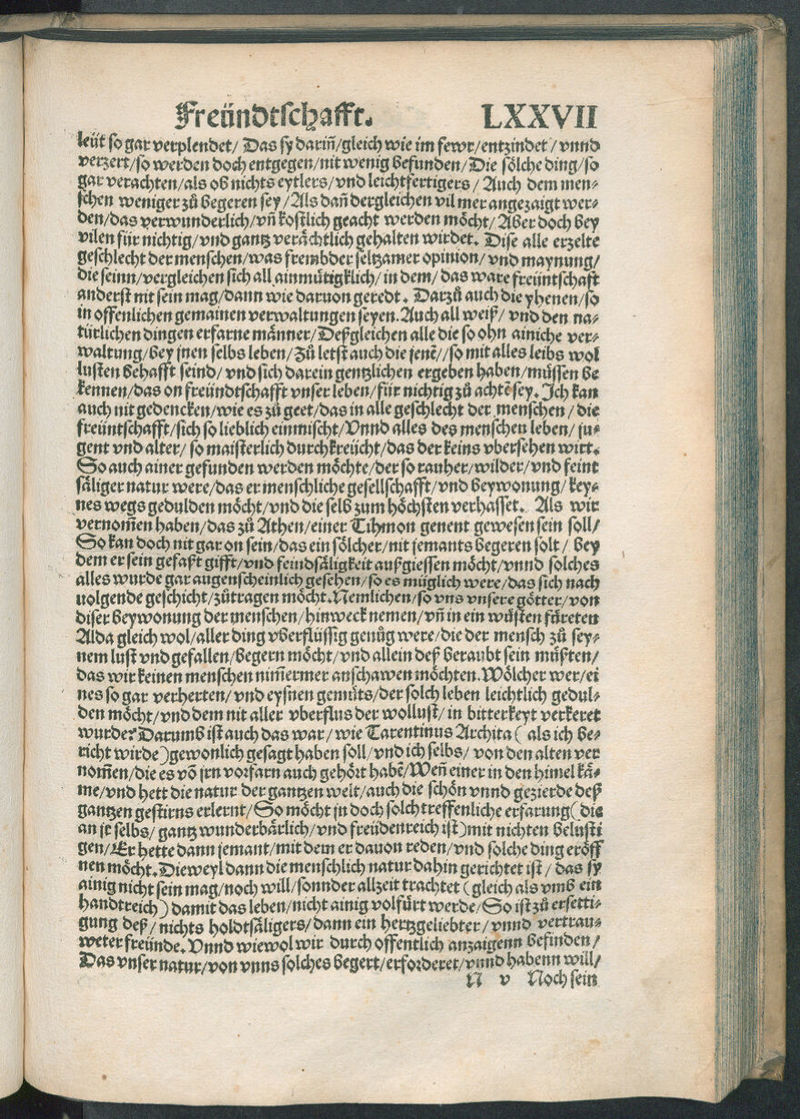 Freündtschafft. LXXVII
leüt so gar verplendet/ Das sy dariñ/gleich wie im fewr/entzindet/vnnd
verzert/so werden doch entgegen/nit wenig befunden/Die sölche ding/so
gar verachten/als ob nichts eytlers/vnd leichtfertigers/ Auch dem men⸗
schen weniger zů begeren sey/Als dañ dergleichen vil mer angezaigt wer⸗
den/das verwunderlich/vñ kostlich geacht werden möcht/Aber doch bey
vilen für nichtig/vnd gantz verächtlich gehalten wirdet. Dise alle erzelte
geschlecht der menschen/was frembder seltzamer opinion/ vnd maynung/
die seinn/vergleichen sich all ainmütigklich/in dem/das ware freüntschaft
anderst nit sein mag/dann wie daruon geredt. Darzů auch die yhenen/so
in offenlichen gemainen verwaltungen seyen. Auch all weiß/ vnd den na⸗
türlichen dingen erfarne männer/Deßgleichen alle die so ohn ainiche ver⸗
waltung/bey jnen selbs leben/Zů letst auch die jenē//so mit alles leibs wol
lusten behafft seind/ vnd sich darein gentzlichen ergeben haben/müssen be
kennen/das on freündtschafft vnser leben/für nichtig zů achtē sey. Ich kan
auch nit gedencken/wie es zů geet/das in alle geschlecht der menschen/ die
freüntschafft/sich so lieblich einmischt/Vnnd alles des menschen leben/ju⸗
gent vnd alter/ so maisterlich durchkreücht/das der keins vbersehen wirt.
So auch ainer gefunden werden möchte/der so rauher/wilder/vnd feint
säliger natur were/das er menschliche gesellschafft/vnd beywonung/key⸗
nes wegs gedulden möcht/vnd die selb zum höchsten verhasset. Als wir
vernom̃en haben/das zů Athen/einer Tihmon genent gewesen sein soll/
So kan doch nit gar on sein/das ein sölcher/nit jemants begeren solt/ bey
dem er sein gefaßt gifft/vnd feindsäligkeit außgiessen möcht/vnnd solches
alles wurde gar augenscheinlich gesehen/so es müglich were/das sich nach
uolgende geschicht/zůtragen möcht. Nemlichen/so vns vnsere götter/von
diser beywonung der menschen/hinweck nemen/ vñ in ein wůsten fůreten
Alda gleich wol/aller ding vberflüssig genůg were/die der mensch zů sey⸗
nem lust vnd gefallen/begern möcht/vnd allein deß beraubt sein müßten/
das wir keinen menschen nim̃ermer anschawen möchten. Wölcher wer/ei
nes so gar verherten/vnd eysnen gemüts/der solch leben leichtlich gedul⸗
den möcht/vnd dem nit aller vberflus der wollust/in bitterkeyt verkeret
wurde? Darumb ist auch das war/ wie Tarentinus Archita ( als ich be⸗
richt wirde )gewonlich gesagt haben soll/vnd ich selbs/ von den alten ver
nom̃en/die es vō jrn vorfarn auch gehört habē/Weñ einer in den himel kä⸗
me/vnd hett die natur der gantzen welt/auch die schön vnnd gezierde deß
gantzen gestirns erlernt/So möcht jn doch solch treffenliche erfarung( die
an jr selbs/ gantz wunderbärlich/vnd freüdenreich ist )mit nichten belusti
gen/Er hette dann jemant/mit dem er dauon reden/vnd solche ding eröff
nen möcht. Dieweyl dann die menschlich natur dahin gerichtet ist/ das sy
ainig nicht sein mag/noch will/sonnder allzeit trachtet ( gleich als vmb ein
handtreich ) damit das leben/nicht ainig volfürt werde/So ist zů ersetti⸗
gung deß/ nichts holdtsäligers/dann ein hertzgeliebter/vnnd vertrau⸗
weter freünde. Vnnd wiewol wir durch offentlich anzaigenn befinden/
Das vnser natur/von vnns solches begert/erforderet/vnnd habenn will/
N v Noch sein